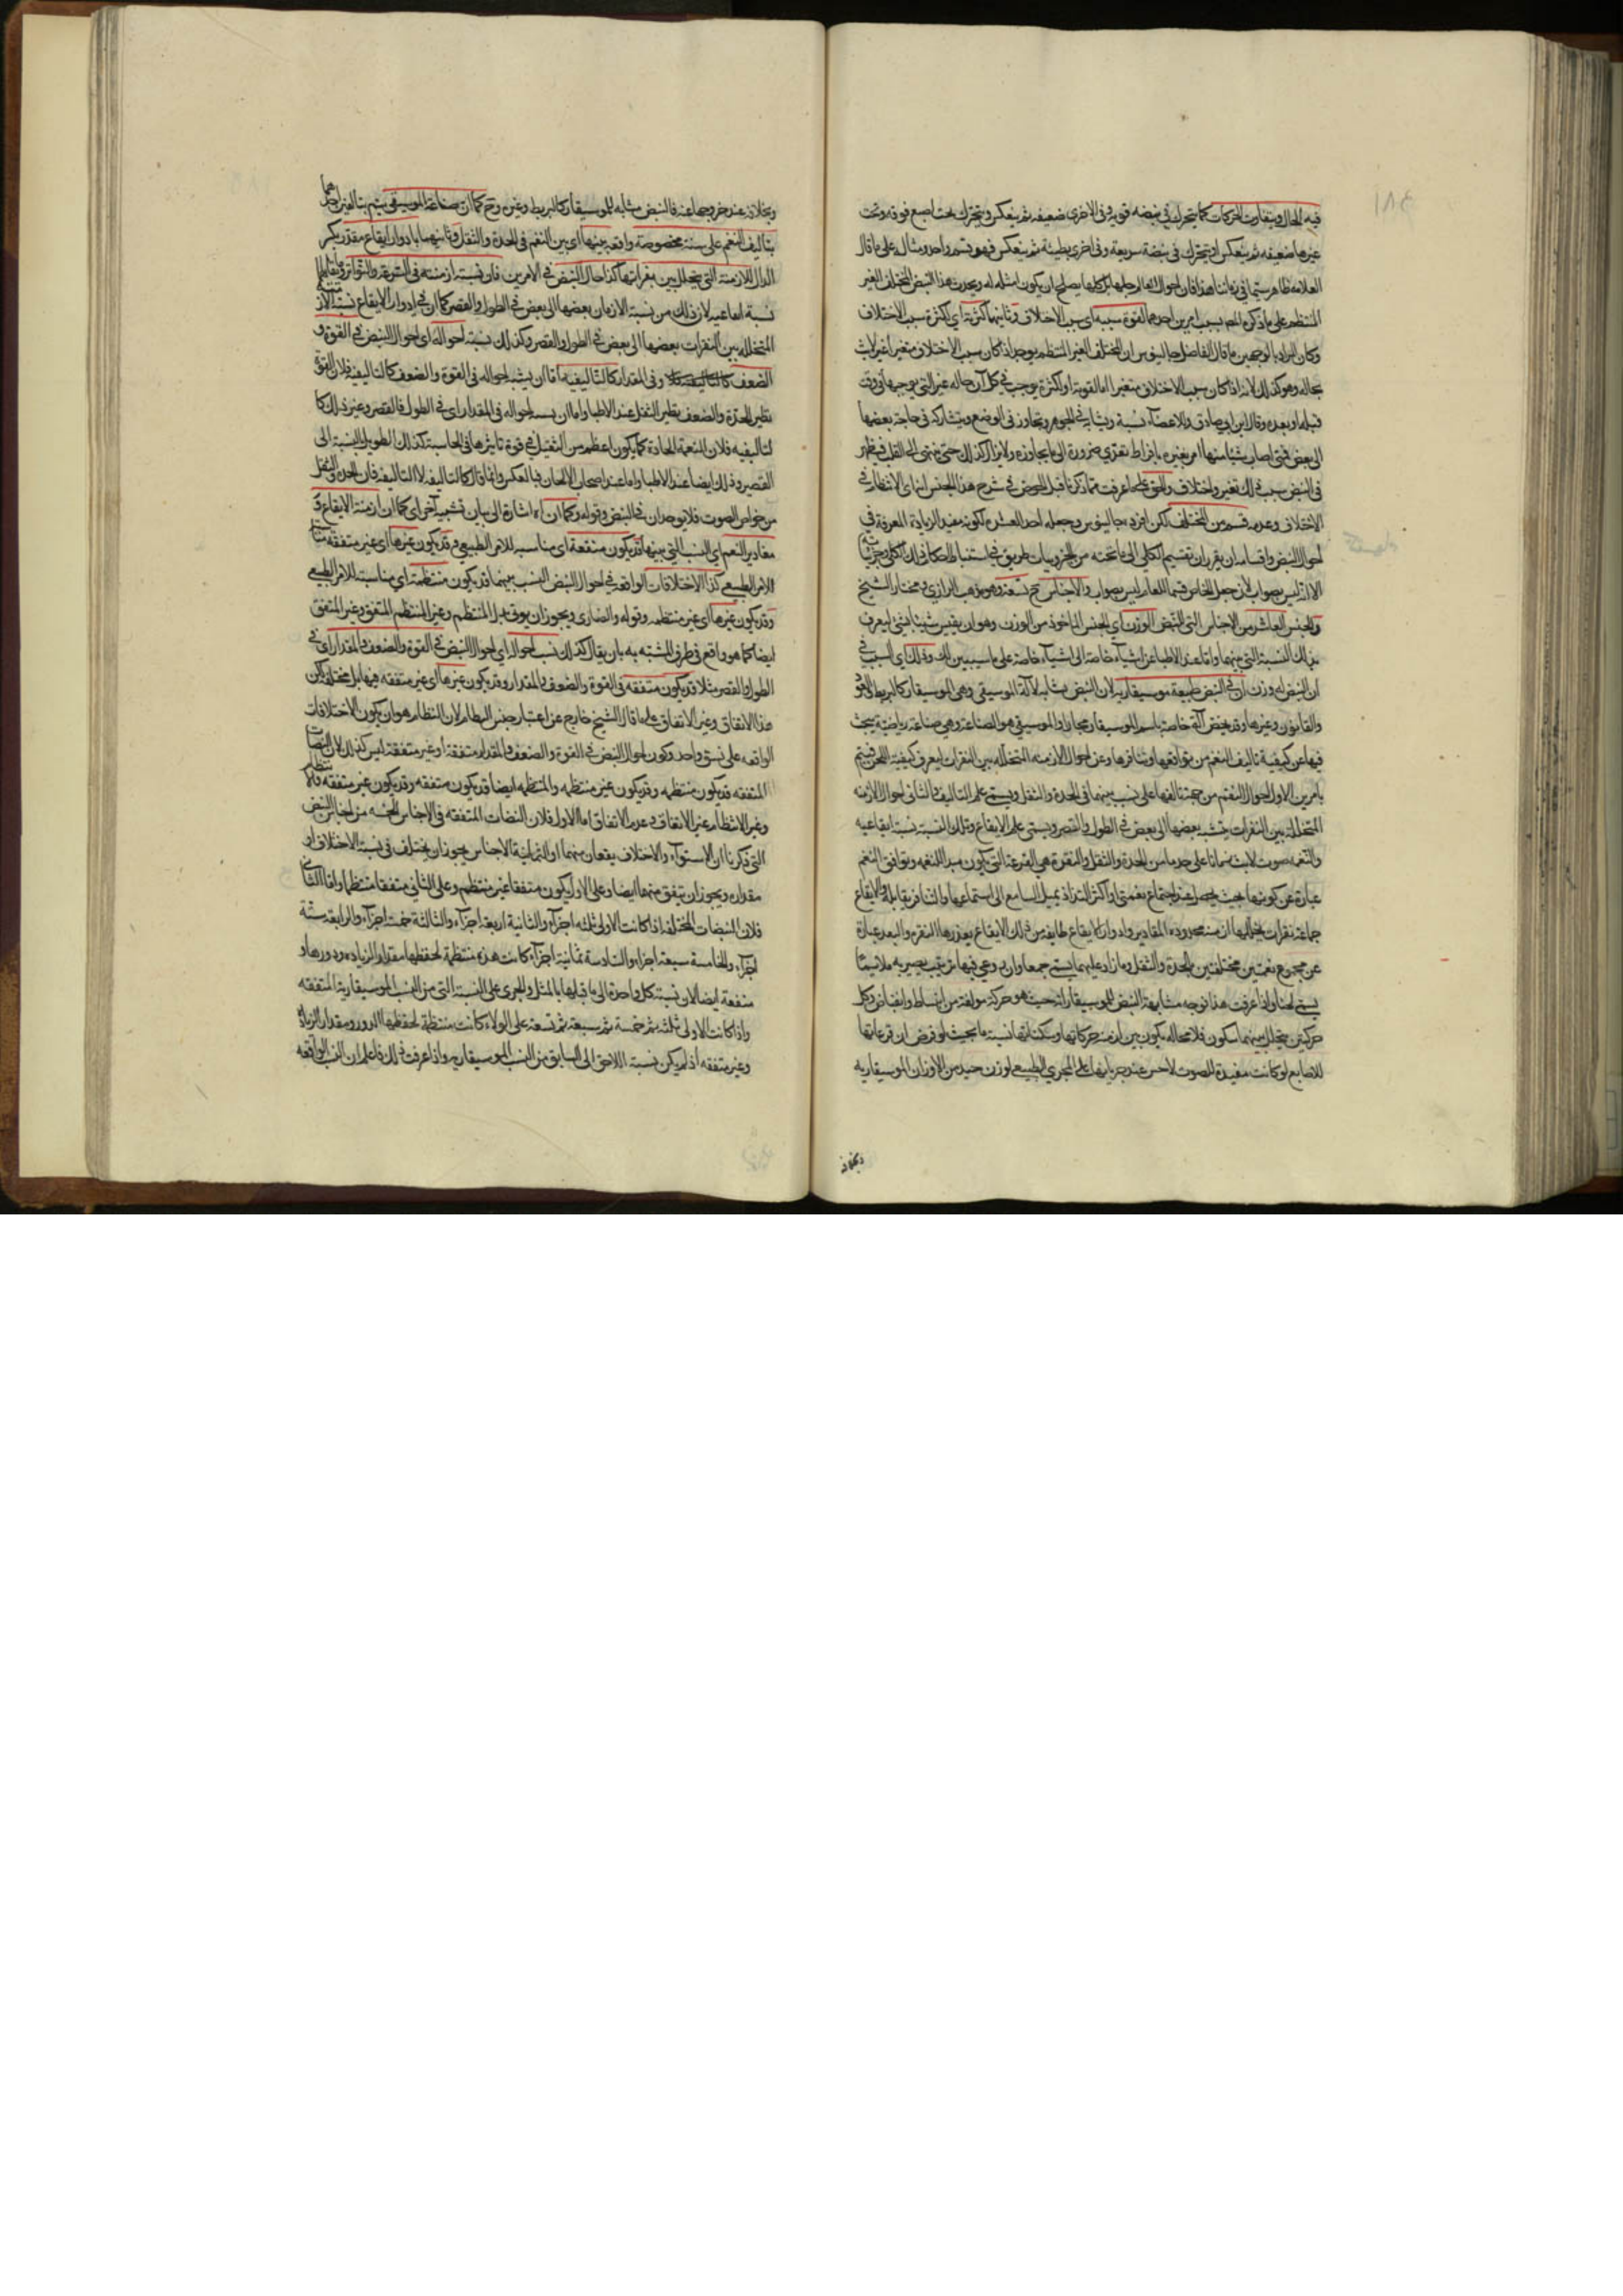 فيه الحال ويتفاوت الحركات كما يتحرك في نبضه قوية وفي الاخرى ضعيفه ثم ينعكس ويتحرك تحت اصبع قوية وتحت
غيرها ضعيفه ثم ينعكس او يتحرك في نبضة سريعة وفي اخرى بطيئة ثم ينعكس فهو قسم واحد ومثاله على ما قال
المنتظم على ما ذكره المص بسبب امرين احدهما لقوة سببه اى سبب الاختلاف وثانيهما كثرته اى لكثرة سبب الاختلاف
وكان المراد بالوجهين ما قال الفاضل جالينوس ان المختلف الغير المنتظم يوجد اذا كان سبب الاختلاف متغيرا غير لابث
بحاله وهو كذلك لانه اذا كان سبب الاختلاف متغيرا اما لقوته او لكثرته يوجب في كل آن حاله غير التي يوجبها في وقت
قبله او بعده وقال ابن ابي صادق وللاعضاء نسبة وتشابه في الجوهر وتجاوز في الوضع ومشاركه في حاجة بعضها
الى بعض فمتى اصاب شيئا منها امر يغيره بافراط تعدى ضرورة الى ما يجاوزه ولا يزال كذلك حتى ينتهى الى القلب فيظهر
في النبض بسبب ذلك تغير واختلاف والحق
الاختلاف وعدمه قسم من المختلف لكن افرده جالينوس وجعله احد العشره لكونه مفيدا لزيادة المعرفة في
احوال النبض واقسامه
الا انه ليس بصواب لان جعل الخاص قسيما للعام ليس بصواب والاجناس ح تسعة وهو مذهب الرازي ومختار الشيخ
والجنس العاشر من الاجناس التي للنبض الوزن اي الجنس الماخوذ من الوزن وهو ان يقيس شيئا بشئ ليعرف
بذلك النسبة التي بينهما واما عند الاطبا
ان النبض له وزن ان في النبض طبيعة موسيقارية لان النبض مشابه لآلة الموسيقى وهي الموسيقار كالبربط والعود
والقانون وغيرها وقد يخص آلة خاصة باسم الموسيقار مجازا والموسيقى هو الصناعة وهي صناعة رياضية يبحث
فيها عن كيفية تاليف النغم من توافقها وتنافرها وعن احوال الازمنه المتخلله بين النقرات ليعرف كيفية اللحن فيتم
بامرين الاول احوال النغم من جهة تالفها على نسب بينهما في الحدة والثقل ويسمى علم التاليف والثاني احوال الازمنه
المتخللة بين النقرات بنسبة بعضها الى بعض في الطول والقصر ويسمى علم الايقاع وتلك النسبة نسبة ايقاعيه
والنغمه صوت لابث زمانا على حد ما من الحدة والثقل والنقرة هي القرعة التي يكون مبدا للنغمه وتوافق النغم
عبارة عن كونها بحيث يحصل عند اجتماع نغمتين او اكثر التذاذ يميل السامع الى استماعها والتنافر يقابله والايقاع
جماعة نقرات يتخللها ازمنه محدوده المقادير
عن مجموع نغمتين مختلفتين بالحدة والثقل وما زاد عليهما يسمى جمعا وان روعي فيها ترتيب يصير به ملايما
يسمى لحنا واذا عرفت هذا فوجه مشابهة النبض للموسيقار انه حيث هو حركة مؤلفة من انبساط وانقباض وكل
حركتين يتخلل بينهما سكون فلا محاله يكون بين ازمنة حركاتها وسكناتها نسبة ما بحيث لو فرض ان قرعاتها
للاصابع لو كانت مفيدة للصوت لاحس عند جريانها على المجرى الطبيعي لوزن حيد من الاوزان الموسيقاريه
وبخلافه
وبخلافه عند خروجها عنه فالنبض مشابه للموسيقار كالبربط وغيره وح كما ان صناعة الموسيقى يتم بتاليفين احدهما
بتاليف النغم على نسبة مخصوصة واقعه بينها اى بين النغم في الحدة والثقل وثانيهما بادوار ايقاع مقدر بكسر
الدال للازمنة التي يتخلل بين نقراتها كذا حال النبض في الامرين فان نسبة ازمنته في السرعة والتواتر ومقابليهما
نسبة ايقاعيه لان ذلك من نسبة الازمان بعضها الى بعض في الطول والقصر كما ان في ادوار الايقاع نسبة الازمنة
المتخلله بين النقرات بعضها الى بعض في الطول والقصر وكذلك نسبة احواله اى احوال النبض في القوة و
الضعف وفي المقدار كالتاليفيه اما ان يشبه احواله في القوة والضعف كالتاليفيه فلان القوة
نظير الحدة والضعف نظير الثقل عند الاطبا واما ان يشبه احواله في المقدار اى في الطول والقصر وغير ذلك كا
لتاليفيه فلان النغمة الحادة كما يكون اعظم من الثقيل في قوة تاثيرها في الحاسة كذلك الطويل بالنسبة الى
القصير وذلك ايضا عند الاطبا واما عند اصحاب الالحان فبالعكس وانما قال كالتاليفيه لا التاليفيه فان الحدة والثقل
من خواص الصوت فلا يوجدان في النبض وقوله وكما ان اه اشارة الى بيان تشبيه آخر اى كما ان ازمنة الايقاع و
مقادير النغم اى النسب التي بينها قد يكون متفقة اى مناسبه للامر الطبيعي وقد يكون غيرها اى غير متفقه
الامر الطبيعي كذا الاختلافات الواقعه في احوال النبض النسب بينهما قد يكون منتظمة اى مناسبته للامر الطبيعي
وقد يكون غيرها اى غير منتظمه
ايضا كما هو واقع في طرف المشبه به بان يقال كذلك نسب احواله اى احوال النبض في القوة والضعف والمقدار اى في
الطول والقصر مثلا قد يكون متفقه في القوة والضعف والمقدار وقد يكون غيرها اى غير متفقه فيها بل مختلفه لكن
هذا الاتفاق وغير الاتفاق على ما قال الشيخ خارج عن اعتبار جنس النظام لان النظام هو ان يكون الاختلافات
الواقعه على نسق واحد وكون احوال النبض في القوة والضعف والمقدار متفقة او غير متفقة ليس كذلك لان النبضات
المتفقه قد يكون منتظمه وقد يكون غير منتظمه والمنتظمه ايضا قد يكون متفقه وقد يكون غير متفقه
وغير الانتظام غير الاتفاق وعدم الاتفاق اما الاول فلان النبضات المتفقه في الاجناس الخمسه من اجناس النبض
التي ذكرنا ان الاستواء والاختلاف يقعان منهما
مقداره ويجوز ان يتفق منهما ايضا وعلى الاول يكون متفقا غير منتظم وعلى الثاني متفقا منتظما واما الثاني
فلان النبضات المختلفه اذا كانت الاولى ثلثه اجزاء والثانية اربعة اجزاء والثالثة خمسة اجزاء والرابعة ستة
اجزاء والخامسة سبعة اجزاء والسادسة ثمانية اجزاء كانت هذه منتظمة لحفظها مقدار الزياده ودورها و
متفقة ايضا لان نسبة كل واحدة الى ما قبلها
واذا كانت الاولى ثلثه ثم خمسة ثم سبعة ثم تسعة على الولاء كانت منتظمة لحفظها الدور ومقدار الزيادة
وغير متفقه اذ لم يكن نسبة اللاحق الى السابق من النسب الموسيقاريه واذا عرفت ذلك فاعلم ان النسب الواقعه